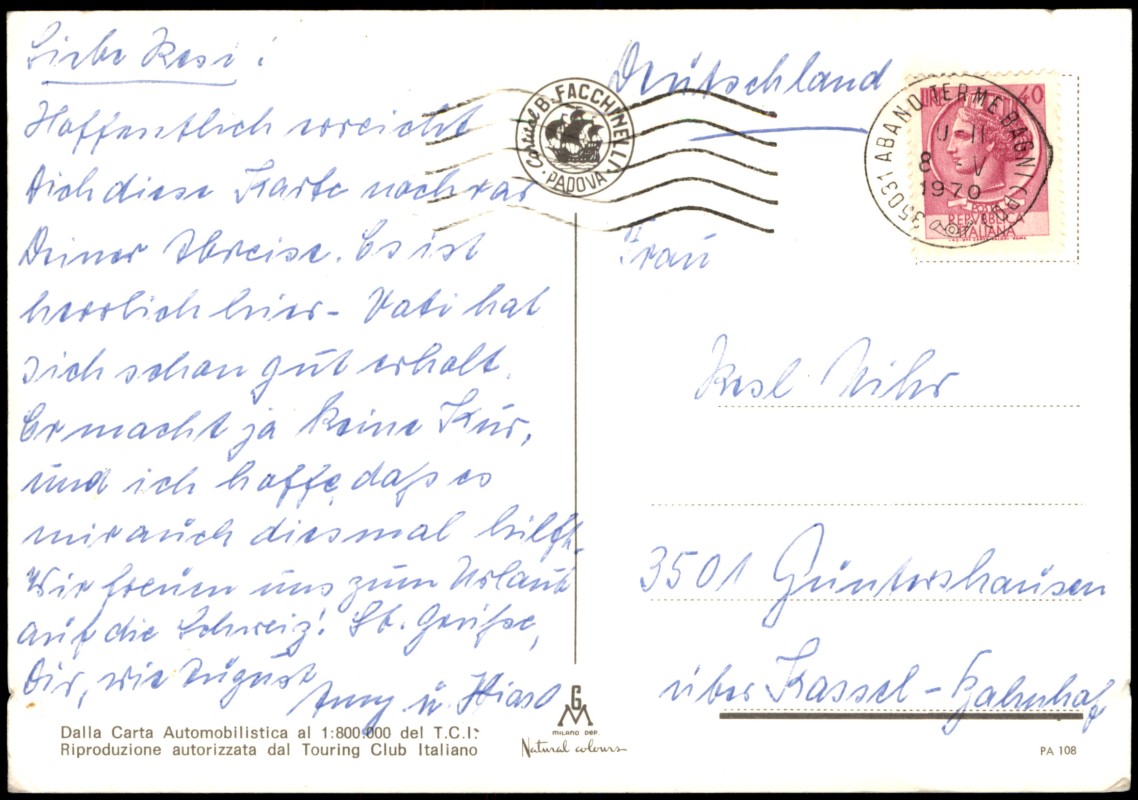 Liebe Resi!
Hoffentlich erreicht
Dich diese Karte noch vor
Deiner Abreise. Es ist
herrlich hier - Vati hat
sich schon gut erholt.
Er macht ja keine Kur,
und ich hoffe, daß es
mir auch diesmal hilft.
Wir freuen uns zum Urlaub
auf die Schweiz! Lb. Grüße,
Dir, wie August
Anny u.
Dalla Carta Automobilistica al 1:800.000 del T.C.I.
Riproduzione autorizzata dal Touring Club Italiano
GM
MILANO DEP.
Natural colours
B. FACCHINELLI
PADOVA
Deutschland
35031 ABANO TERME BAGNI (PD)
8 -V
1970
40
POSTE
REPVBBLICA
ITALIANA
Frau
Resl
3501 Guntershausen
über Kassel-Bahnhof
PA 108